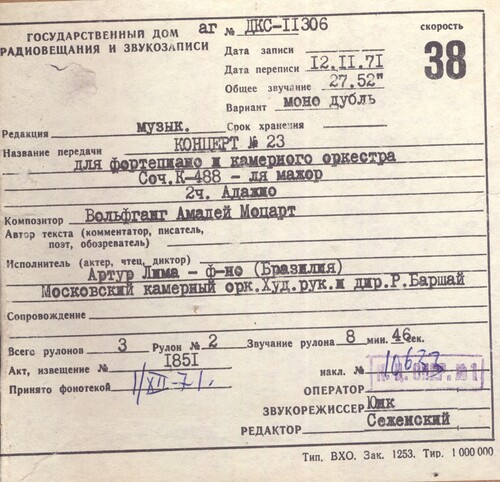 ГОСУДАРСТВЕННЫЙ ДОМ
РАДИОВЕЩАНИЯ И ЗВУКОЗАПИСИ
аг № ДКС-II306
скорость
38
Дата записи
Дата переписи 12.II.71
Общее звучание 27.52"
Вариант моно дубль
Редакция музык. Срок хранения
Название передачи КОНЦЕРТ № 23
для фортепиано и камерного оркестра
Соч.К-488 - ля мажор
2ч. Адажио
Композитор Вольфганг Амадей Моцарт
Автор текста (комментатор, писатель,
поэт, обозреватель)
Исполнитель (актер, чтец, диктор)
Артур Лима - ф-но (Бразилия)
Московский камерный орк.Худ.рук.и дир.Р.Баршай
Сопровождение
Всего рулонов 3 Рулон № 2 Звучание рулона 8 мин. 46 сек.
Акт, извещение № 1851 накл. № 10633
Принято фонотекой 1/XII-71. ОПЕРАТОР
ЗВУКОРЕЖИССЕР Юик
РЕДАКТОР Сеженский
Тип. ВХО. Зак. 1253. Тир. 1 000 000